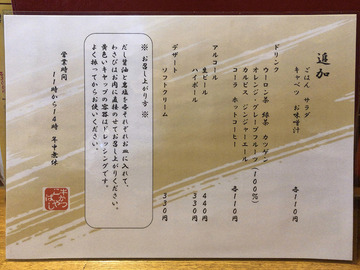 追加
ごはん サラダ
キャベツ お味噌汁 各１１０円
ドリンク
ウーロン茶 緑茶 カツゲン
オレンジ・グレープフルーツ(１００％)
カルピス ジンジャーエール
コーラ ホットコーヒー 各１１０円
アルコール
生ビール ４４０円
ハイボール ３３０円
デザート
ソフトクリーム ３３０円
※ お召し上がり方 ※
だし醤油と岩塩を各それぞれお皿に入れて、
わさびはお肉に直接のせてお召し上がりください。
黄色いキャップの容器はドレッシングです。
よく振ってからお使いください。
営業時間
１１時から１４時 年中無休